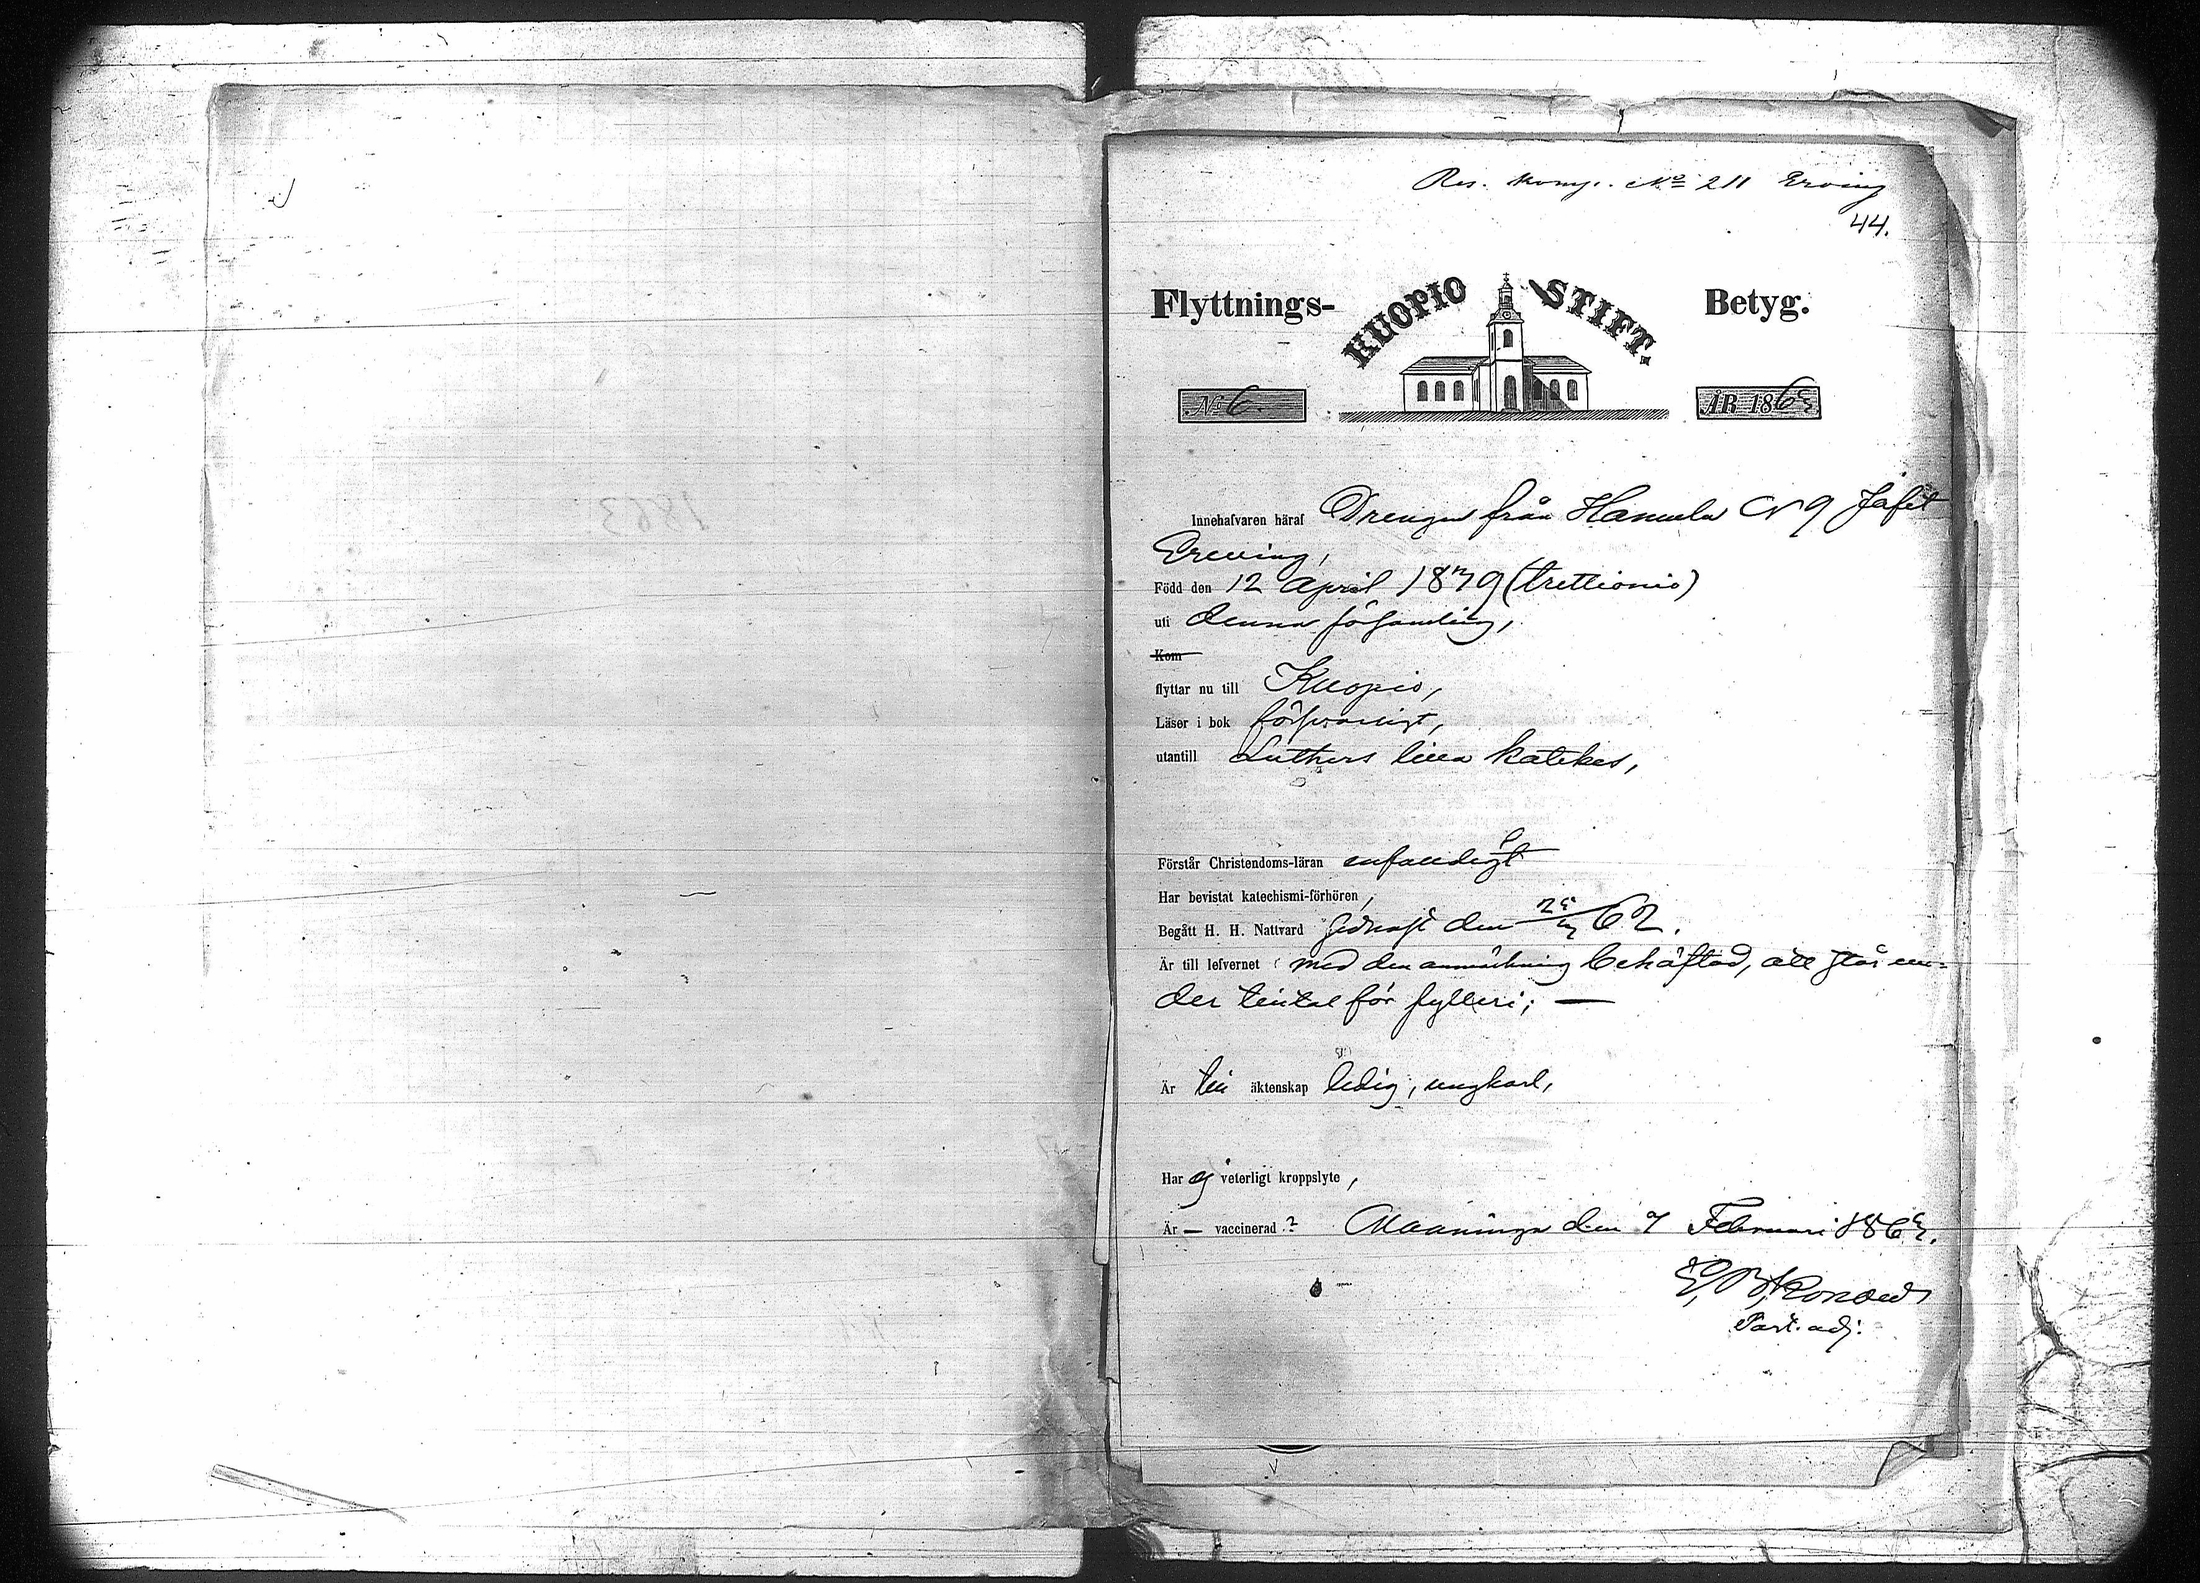 Res. komp. No 211 Erving
44.
Flyttnings- KUOPIO STIFT. Betyg.
No 6. ÅR 1863
1863
Innehafvaren häraf Drengen från Hamula N 9 Jafet
Ereving,
Född den 12 April 1839 (trettionio)
uti denna församling,
Kom
flyttar nu till Kuopio,
Läser i bok försvarligt,
utantill Luthers lilla katekes,
Förstår Christendoms-läran enfaldigt
Har bevistat katechismi-förhören,
Begått H. H. Nattvard sednast den 62.
Är till lefvernet med den anmärkning behäftad, att står un-
der tilltal för fylleri; —
Är till äktenskap ledig, ungkarl,
Har ej veterligt kroppslyte,
Är — vaccinerad ? Maaninga den 7 Februari 1863.
Past. adj.